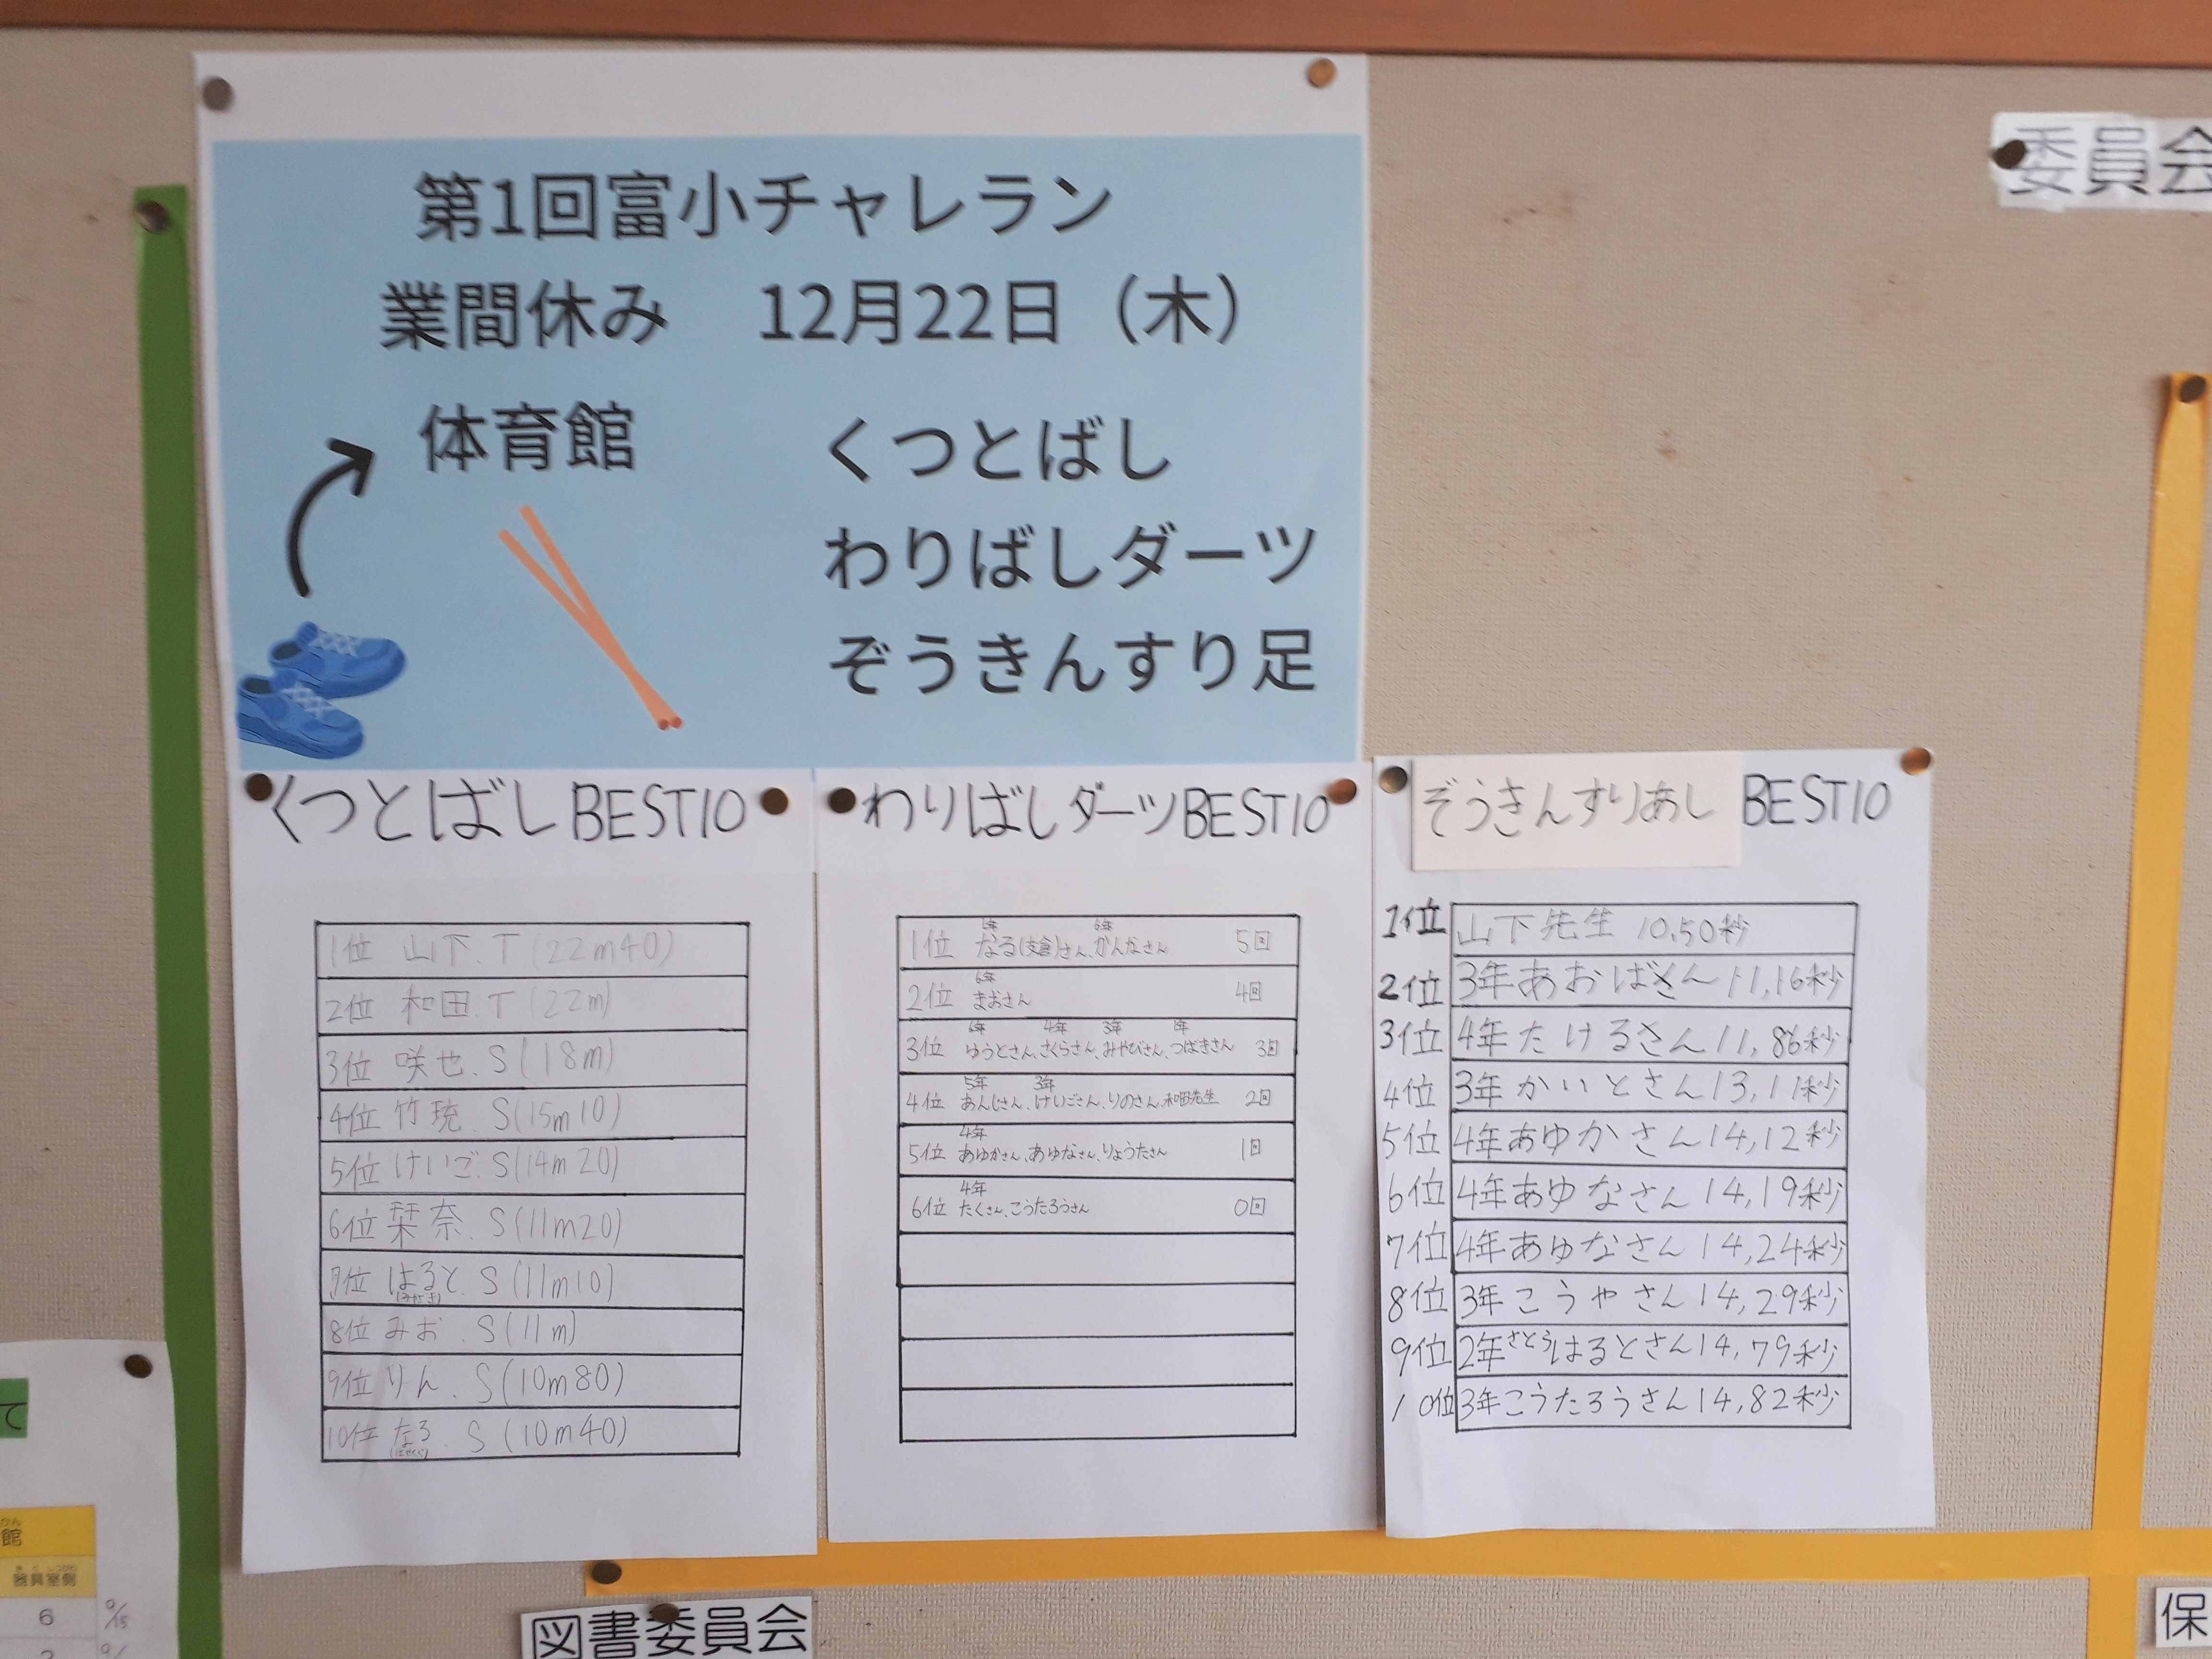 第1回富小チャレラン
業間休み 12月22日（木）
体育館
くつとばし
わりばしダーツ
ぞうきんすり足
くつとばしBEST10
1位 山下.T (22m40)
2位 和田.T (22m)
3位 咲也.S (18m)
4位 竹琉.S (15m10)
5位 けいご.S (14m20)
6位 栞奈.S (11m20)
7位 はると.S (11m10)
8位 みお.S (11m)
9位 りん.S (10m80)
10位 なる.S (10m40)
わりばしダーツBEST10
6年
1位 なる さん、かんなさん 5回
6年
2位 まおさん 4回
6年 4年 3年 1年
3位 ゆうとさん、さくらさん、みやびさん、つばきさん 3回
5年 3年
4位 あんじさん、けいごさん、りのさん、和田先生 2回
4年
5位 あゆかさん、あゆなさん、りょうたさん 1回
4年
6位 たくさん、こうたろうさん 0回
ぞうきんすりあし BEST10
1位 山下先生 10,50秒
2位 3年あおばさん 11,16秒
3位 4年たけるさん 11,86秒
4位 3年かいとさん 13,11秒
5位 4年あゆかさん 14,12秒
6位 4年あゆなさん 14,19秒
7位 4年あゆなさん 14,24秒
8位 3年こうやさん 14,29秒
9位 2年さとうはるとさん 14,79秒
10位 3年こうたろうさん 14,82秒
委員会
図書委員会
保
て
かん
館
器具室側
6 9/15
2